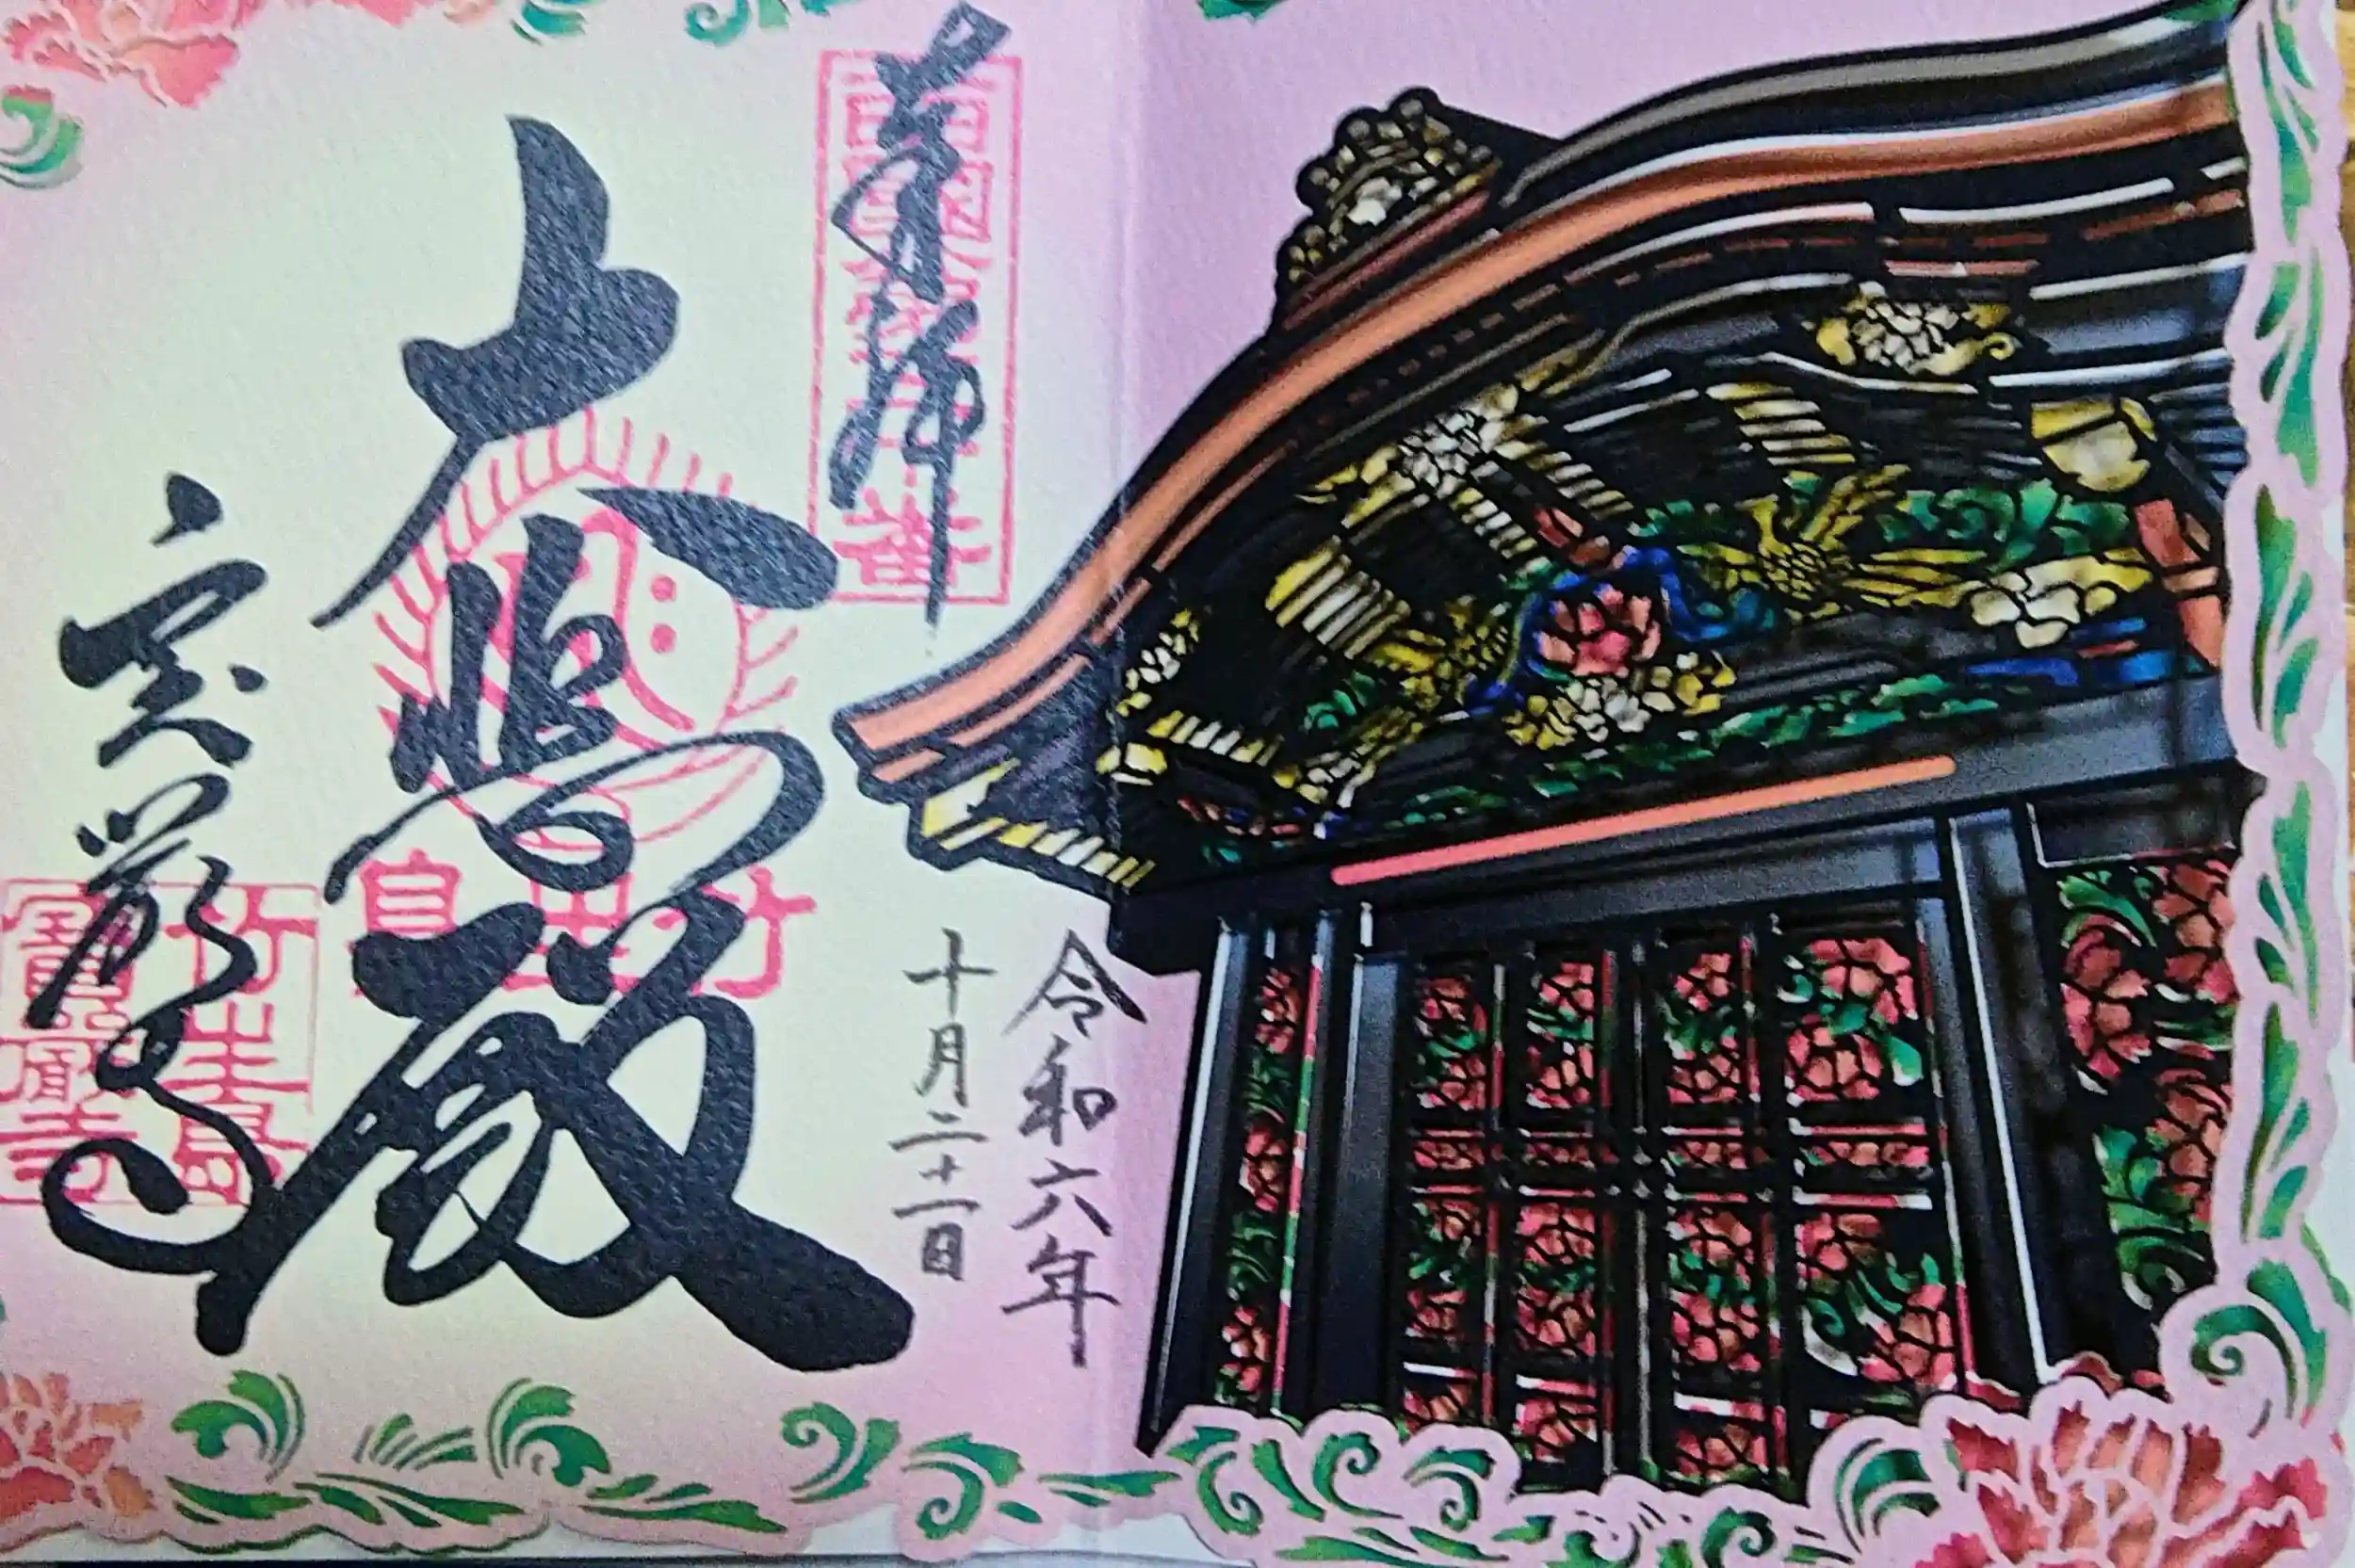 奉拝
西國第三十番
令和六年
十月二十一日
大悲殿
竹生島
宝厳寺
竹生島
寶嚴寺